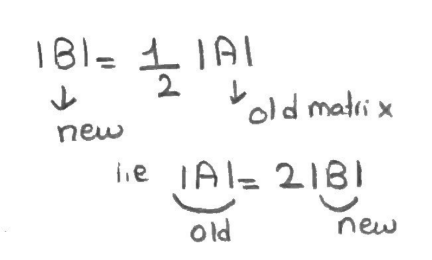 |B| = 1/2 |A|
↓ ↓
new old matrix
i.e |A| = 2|B|
old new